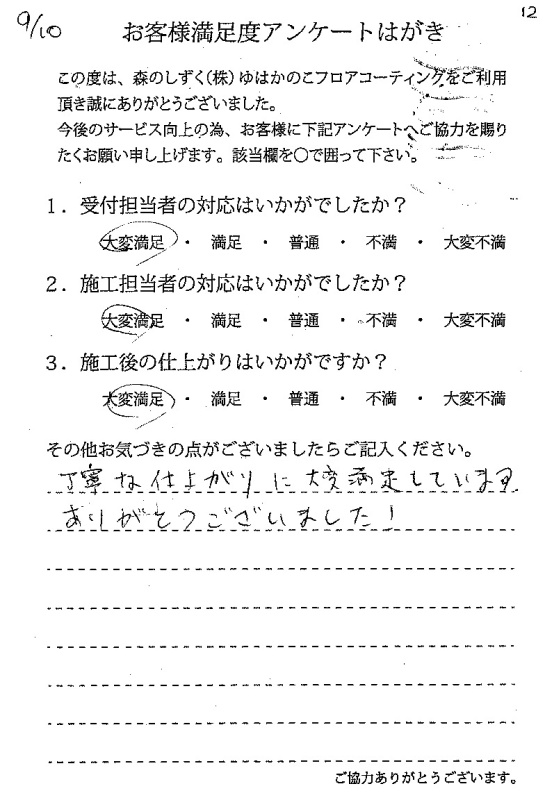 9/10
12
お客様満足度アンケートはがき
この度は、森のしずく(株)ゆはかのこフロアコーティングをご利用
頂き誠にありがとうございました。
今後のサービス向上の為、お客様に下記アンケートへご協力を賜り
たくお願い申し上げます。該当欄を〇で囲って下さい。
1．受付担当者の対応はいかがでしたか？
大変満足 ・ 満足 ・ 普通 ・ 不満 ・ 大変不満
2．施工担当者の対応はいかがでしたか？
大変満足 ・ 満足 ・ 普通 ・ 不満 ・ 大変不満
3．施工後の仕上がりはいかがですか？
大変満足 ・ 満足 ・ 普通 ・ 不満 ・ 大変不満
その他お気づきの点がございましたらご記入ください。
丁寧な仕上がりに大変満足しています
ありがとうございました！
ご協力ありがとうございます。